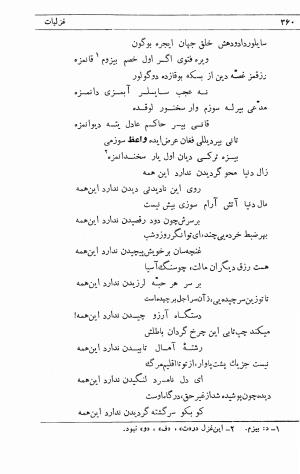 ۳۶۰
غزلیات
سایلوردادودهش خلق جهان ایچره بوگون
ویره فتوی اگر اول خصم بیزوم¹ قانمزه
رزقمز غصّه دین از بسکه بوقازده دوگولور
نه عجب سایلر آبمزی دانمزه
مدّعی بیرله سوزم وار سخنور لوقده
قانی بیر حاکم عادل یتسه دیوانمزه
تانی بیردیللی فغان عرض ایده واعظ سوزمی
بیزه ترکی دیان اول یار سخندانمزه²
زال دنیا محو گردیدن ندارد این همه
روی این نادیدنی دیدن ندارد این همه
مال دنیا آتش آرام سوزی بیش نیست
برسرش چون دود رقصیدن ندارد این همه
بهر ضبط خرده یی چند، ای توانگر روز و شب
غنچه سان بر خویش پیچیدن ندارد این همه
هست رزق دیگران مالت، چو سنگ آسیا
بر سر هر حبّه لرزیدن ندارد این همه
تا تو زین سر چیده یی، زآن سر اجل بر چیده است
دستگاه آرزو چیدن ندارد این همه!
میکند چپ تابی این چرخ گردان باطلش
رشتهٔ آمال تابیدن ندارد این همه
نیست جز یک پشت پاوار، از تو تا اقلیم مرگ
ای دل نامرد لنگیدن ندارد این همه
دیده چون پوشیده شد از غیر حق، در گاه اوست
کو بکو سر گشته گردیدن ندارد این همه
۱ـ د: بیزم. ۲ـ این غزل در «ت»، «ف»، «و» نبود.